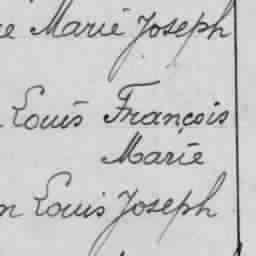 Marie Joseph
Louis François
Marie
Louis Joseph